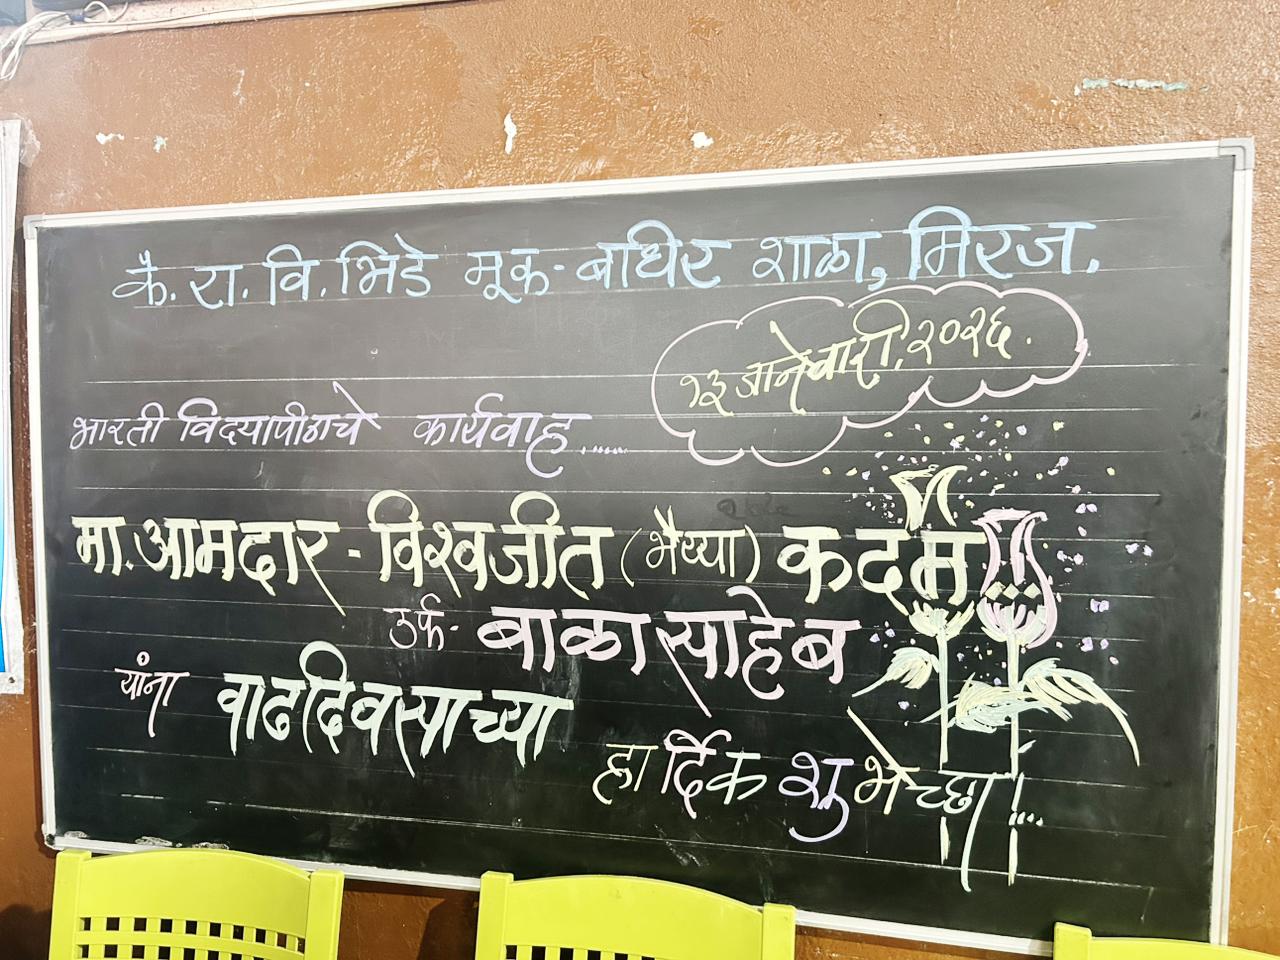 कै. रा. वि. भिडे मूक-बधिर शाळा, मिरज.
१३ जानेवारी, २०२६.
भारती विद्यापीठाचे कार्यवाह......
मा. आमदार - विश्वजीत (भैय्या) कदम
उर्फ - बाळासाहेब
यांना वाढदिवसाच्या
हार्दिक शुभेच्छा!...